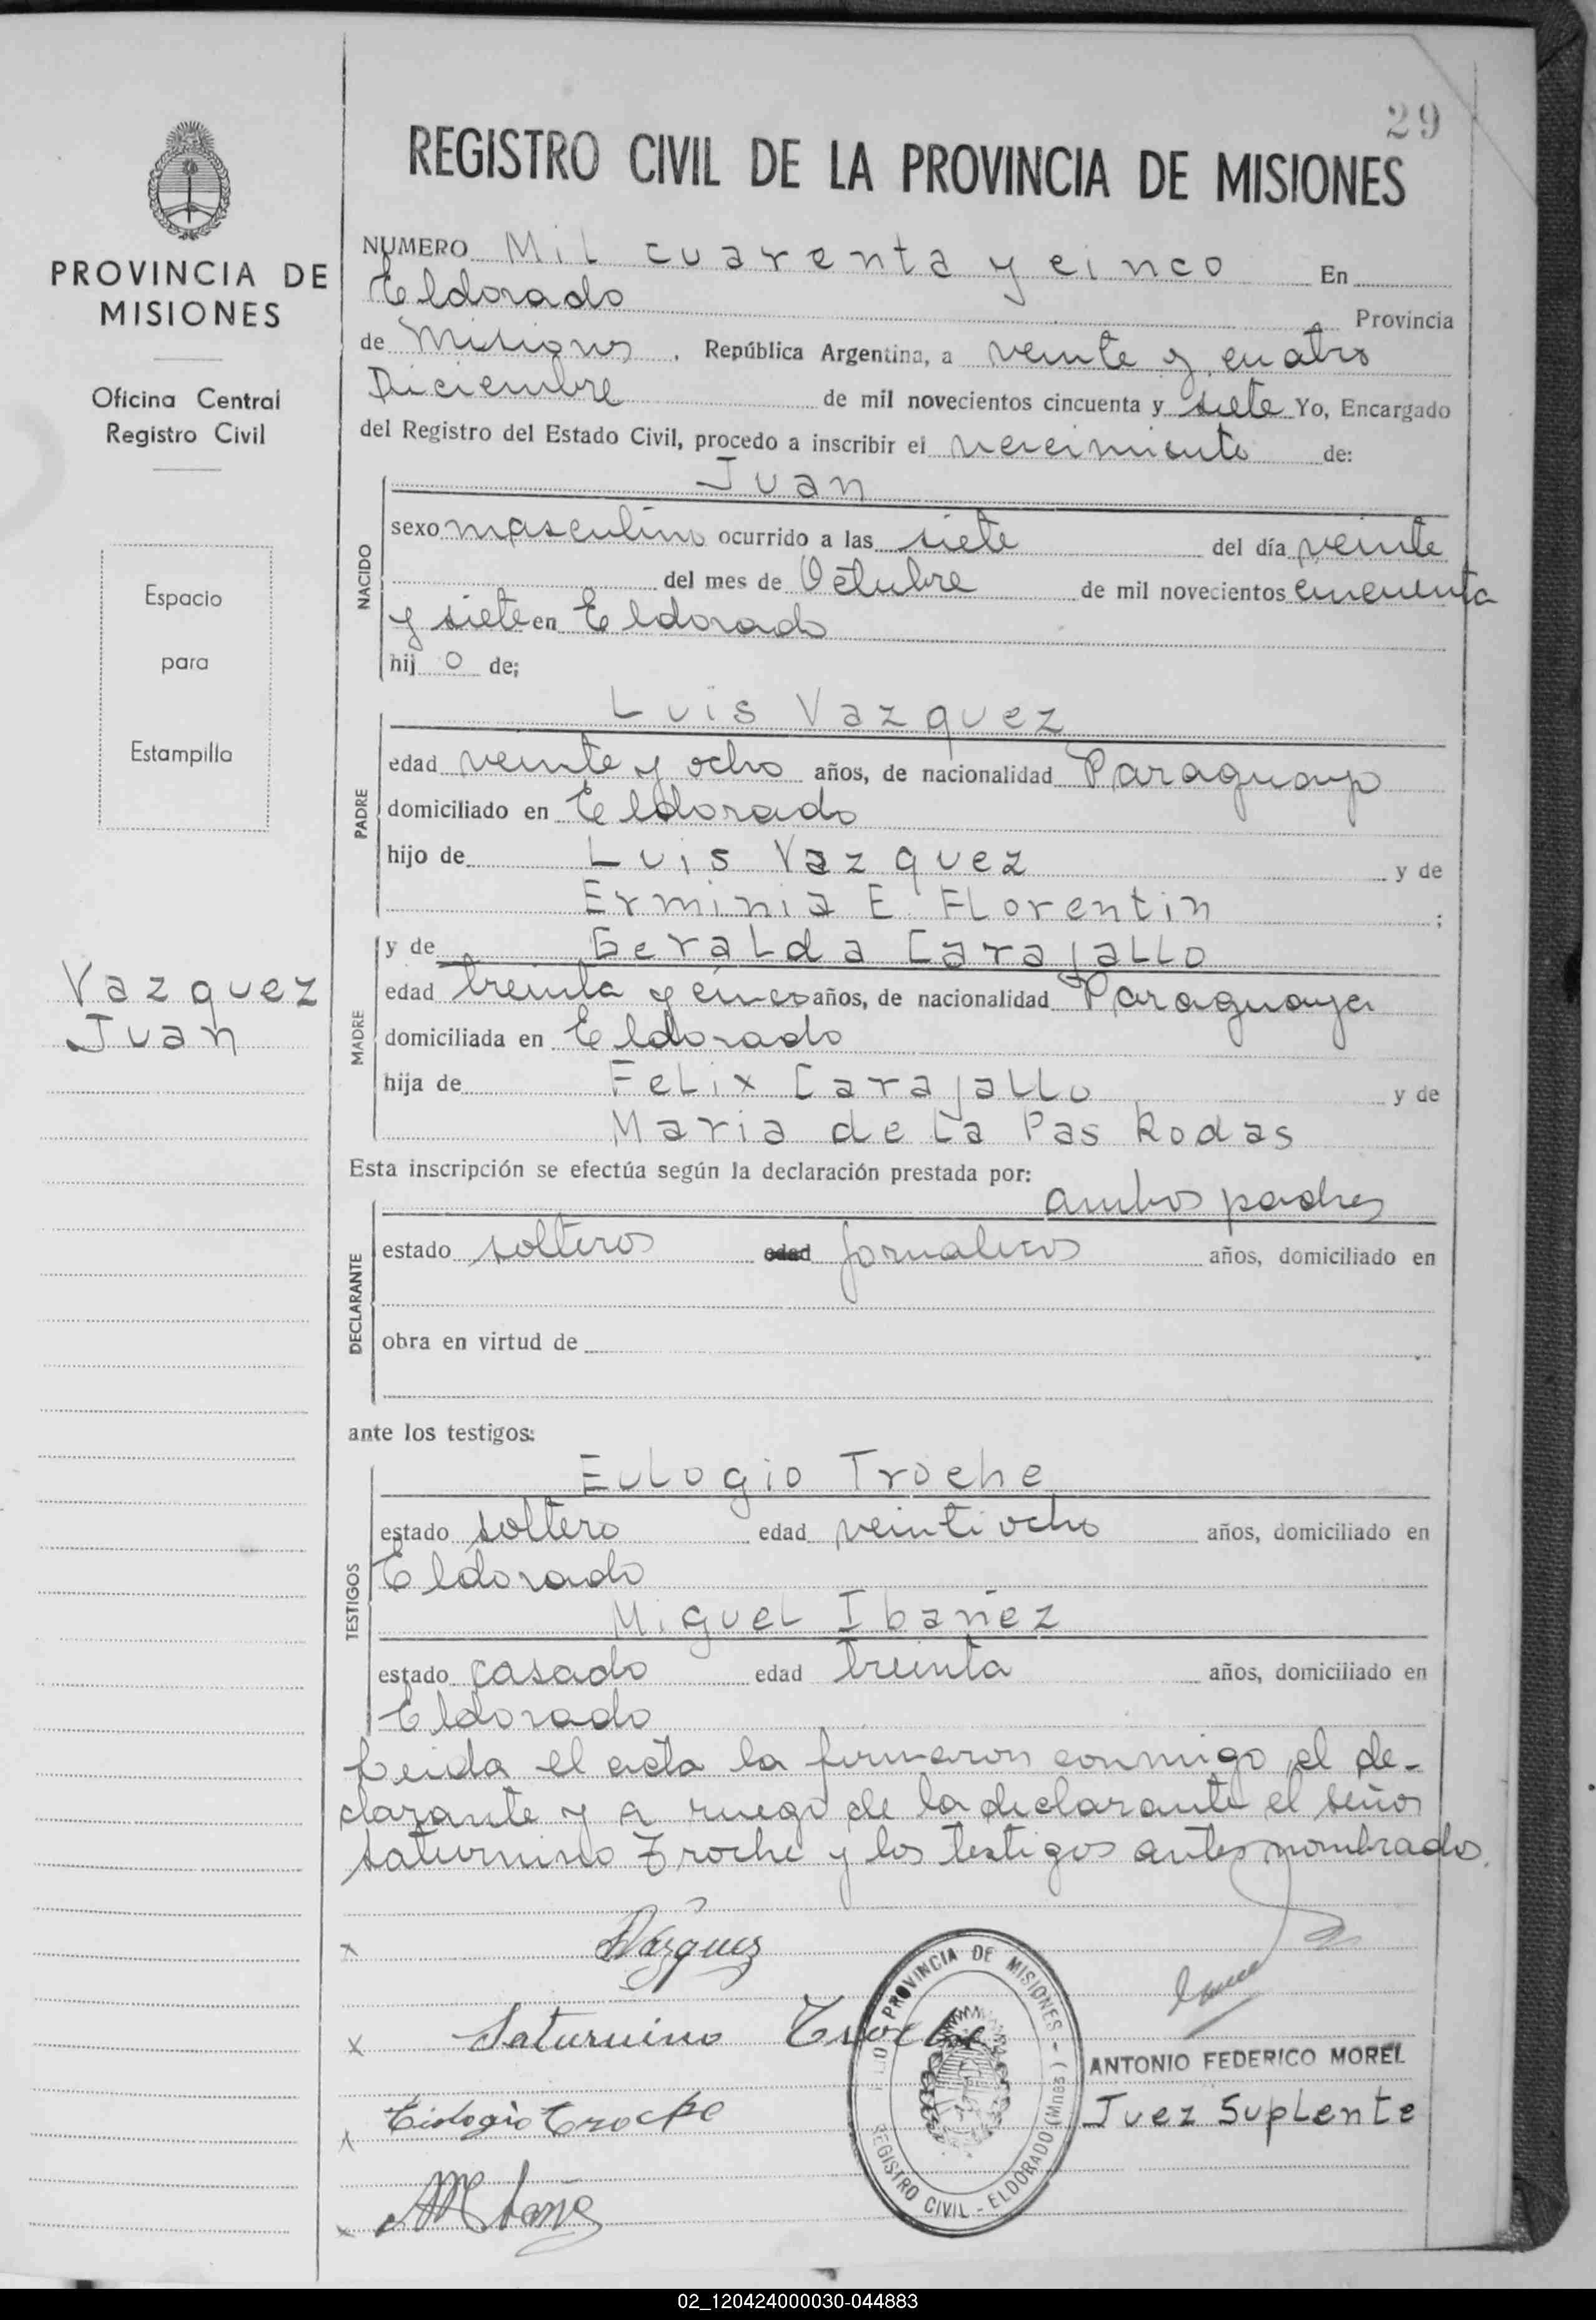 29
REGISTRO CIVIL DE LA PROVINCIA DE MISIONES
PROVINCIA DE
MISIONES
Oficina Central
Registro Civil
Espacio
para
Estampilla
Vazquez
Juan
NUMERO Mil cuarenta y cinco En
Eldorado Provincia
de Misiones, República Argentina, a veinte y cuatro
Diciembre de mil novecientos cincuenta y siete Yo, Encargado
del Registro del Estado Civil, procedo a inscribir el nacimiento de:
Juan
NACIDO
sexo masculino ocurrido a las siete del día veinte
del mes de Octubre de mil novecientos cincuenta
y siete en Eldorado
hij o de;
Luis Vazquez
PADRE
edad veinte y ocho años, de nacionalidad Paraguayo
domiciliado en Eldorado
hijo de Luis Vazquez y de
Erminia E Florentin ;
MADRE
y de Geralda Carajallo
edad treinta y cinco años, de nacionalidad Paraguaya
domiciliada en Eldorado
hija de Felix Carajallo y de
Maria de la Pas Rodas
Esta inscripción se efectúa según la declaración prestada por:
ambos padres
DECLARANTE
estado solteros edad jornaleros años, domiciliado en
obra en virtud de
ante los testigos:
TESTIGOS
Eulogio Troche
estado soltero edad veintiocho años, domiciliado en
Eldorado
Miguel Ibañez
estado casado edad treinta años, domiciliado en
Eldorado
Leida el acta la firmaron conmigo el de-
clarante y a ruego de la declarante el señor
Saturnino Troche y los testigos antes nombrados.
x Vázquez
x Saturnino Troche
ANTONIO FEDERICO MOREL
Juez Suplente
x Eulogio Troche
x
PROVINCIA DE MISIONES -
REGISTRO CIVIL - ELDORADO (Mnes)
02_120424000030-044883